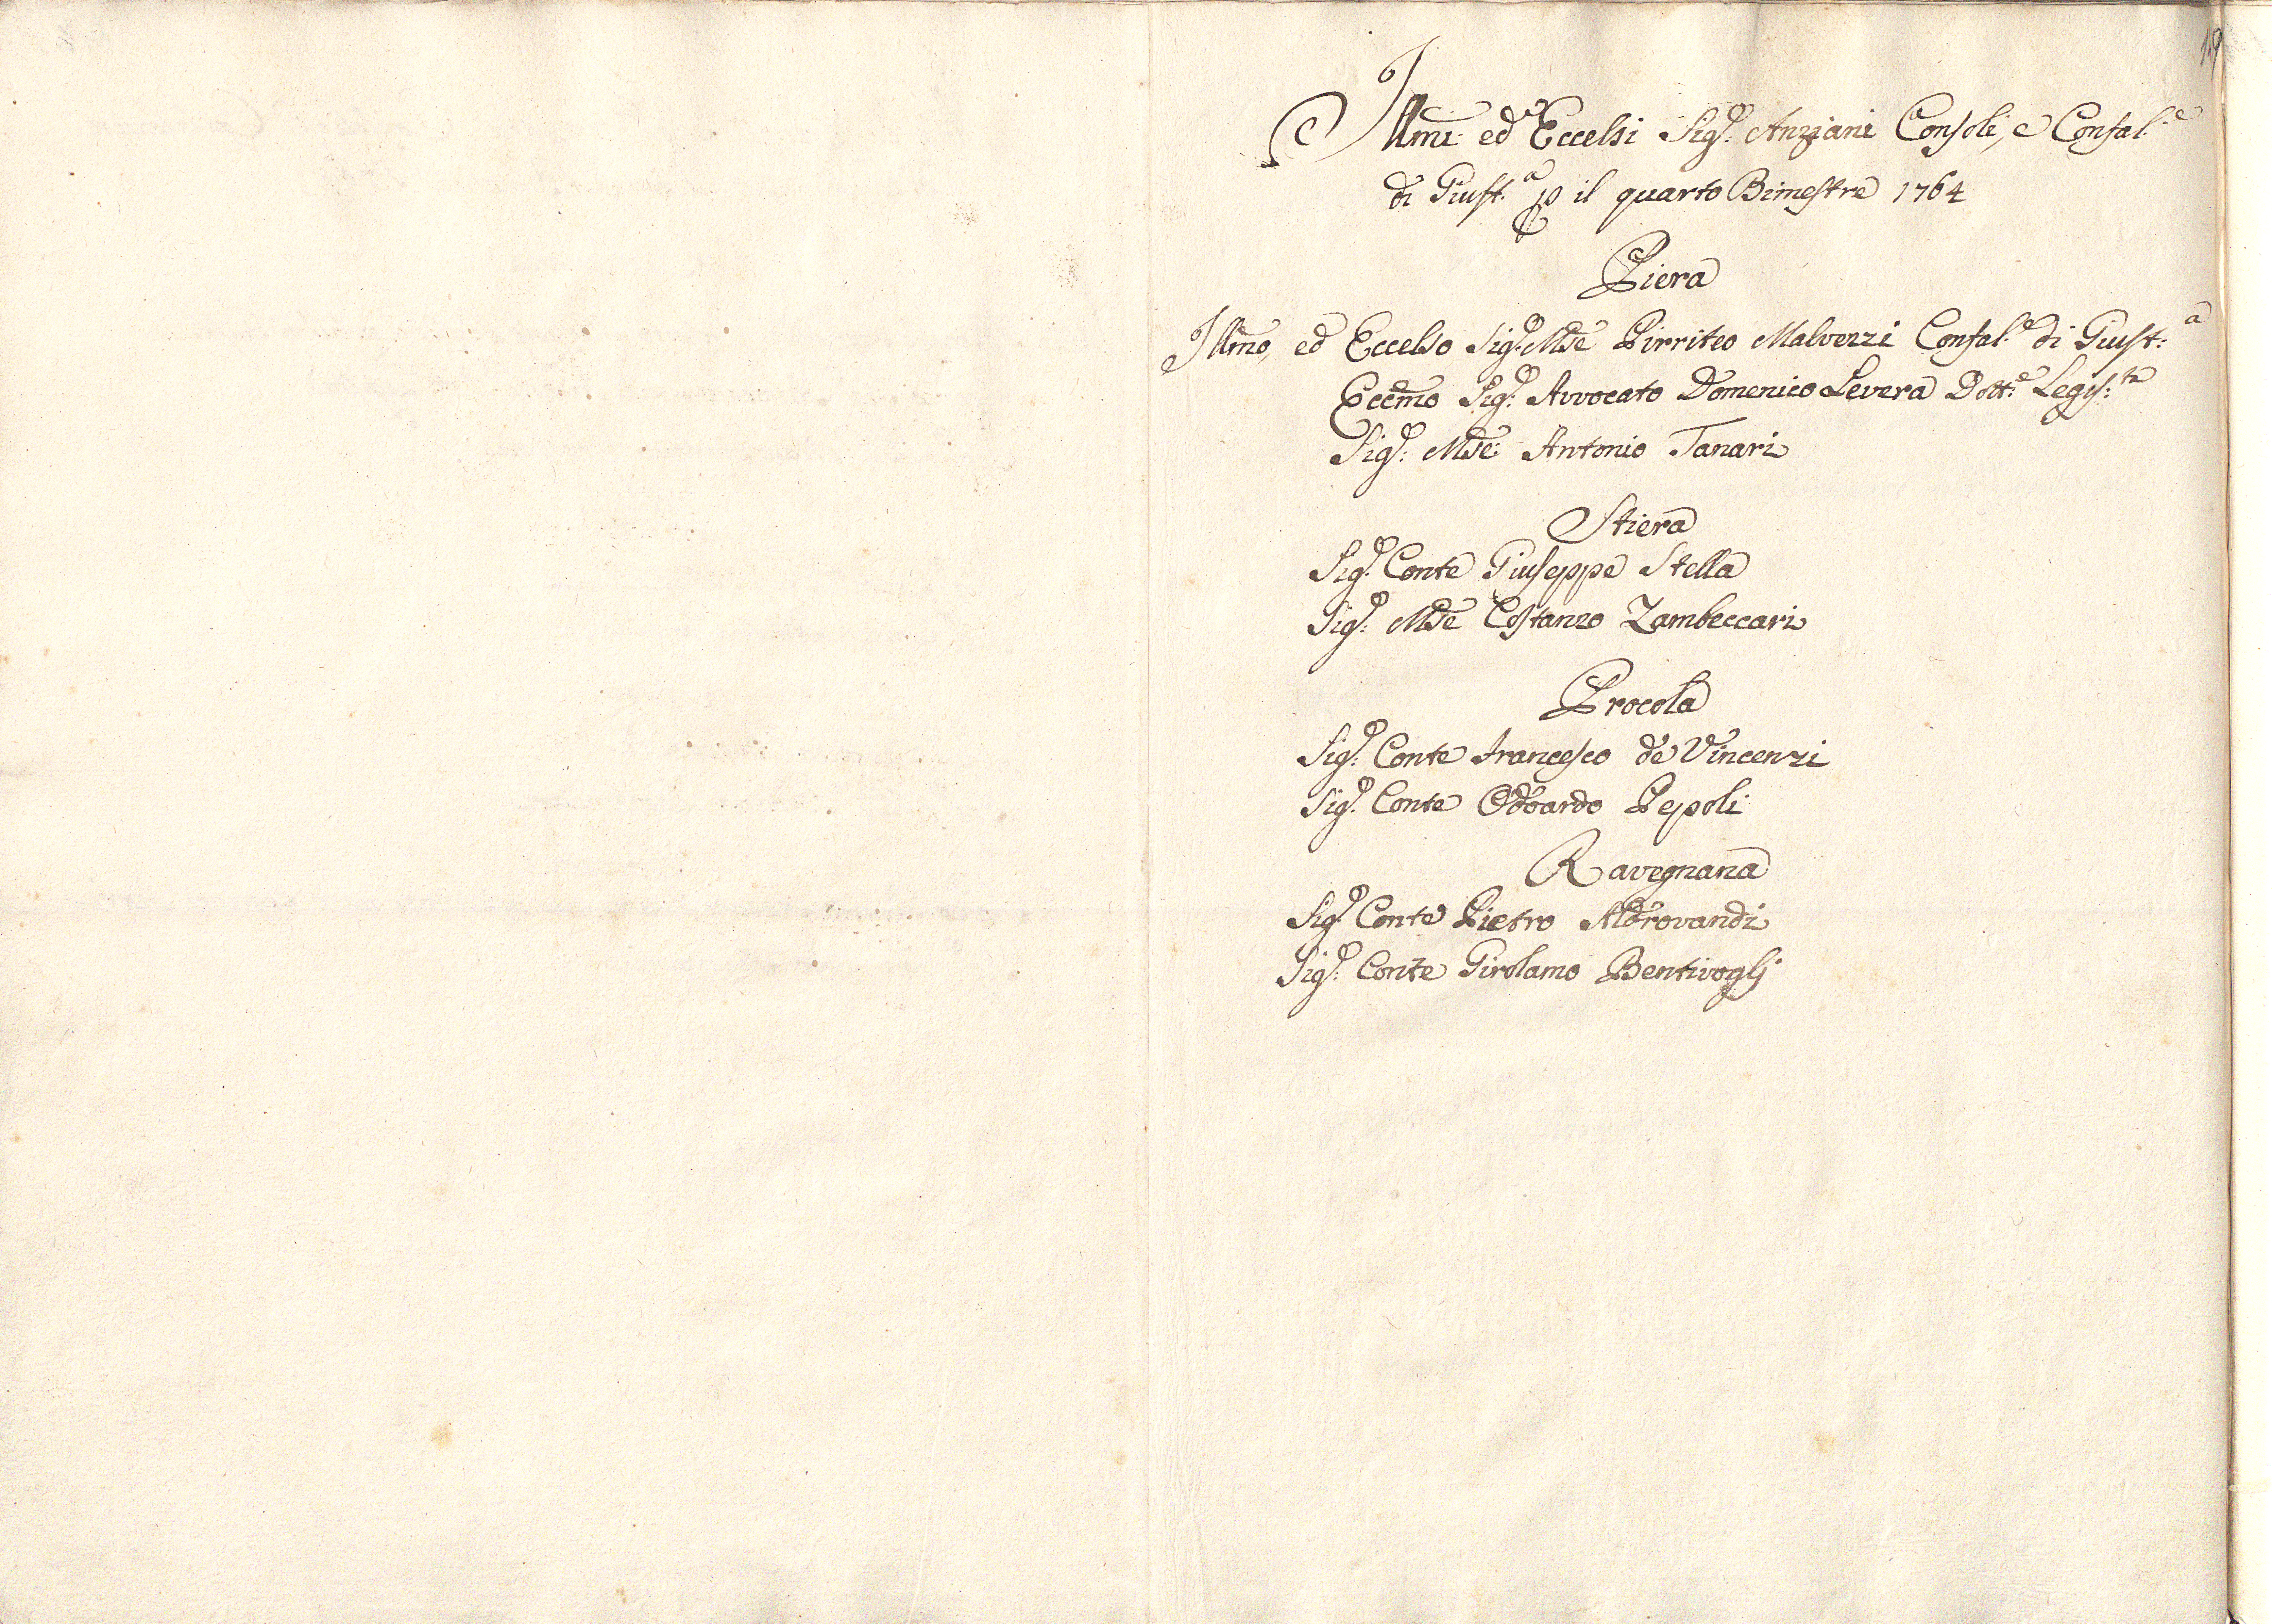 19
Illmi: ed Eccelsi Sig.ri Anziani Consoli, e Confal.e
di Giust.a p il quarto Bimestre 1764
Piera
Illmo, ed Eccelso Sig.r Mse Pirriteo Malvezzi Confal.e di Giust:a
Eccmo Sig.r Avvocato Domenico Levera Dott.e Legis:ta
Sig.r: Mse: Antonio Tanari
Stiera
Sig.r Conte Giuseppe Stella
Sig.r: Mse Costanzo Zambeccari
Procola
Sig.r: Conte Francesco de Vincenzi
Sig.r Conte Odoardo Pepoli
Ravegnana
Sig.r Conte Pietro Aldrovandi
Sig.r: Conte Girolamo Bentivoglj